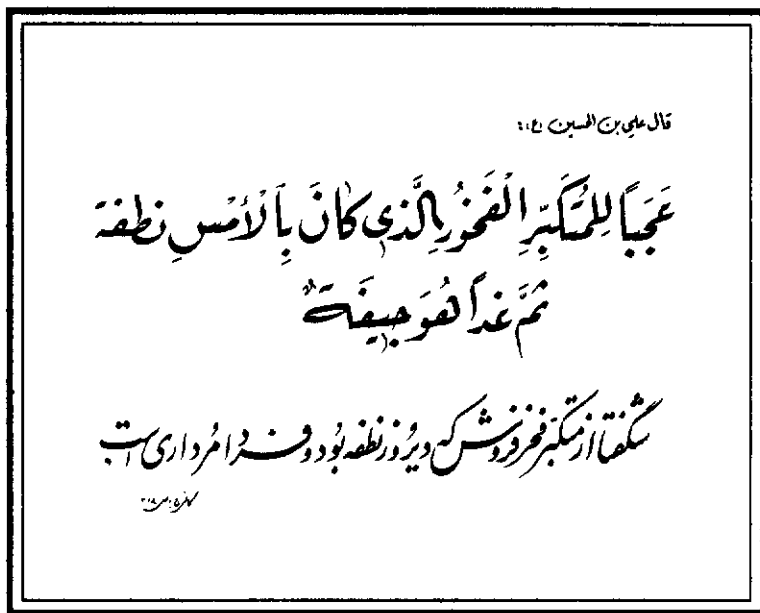 قال علي بن الحسين (ع):
عَجَباً لِلْمُتَكَبِّرِ الْفَخُورِ الَّذِي كَانَ بِالْأَمْسِ نطفة
ثُمَّ غَداً هُوَ جِيفَةٌ
شگفتا از متکبّر فخرفروش که دیروز نطفه بُود و فردا مُرداری است